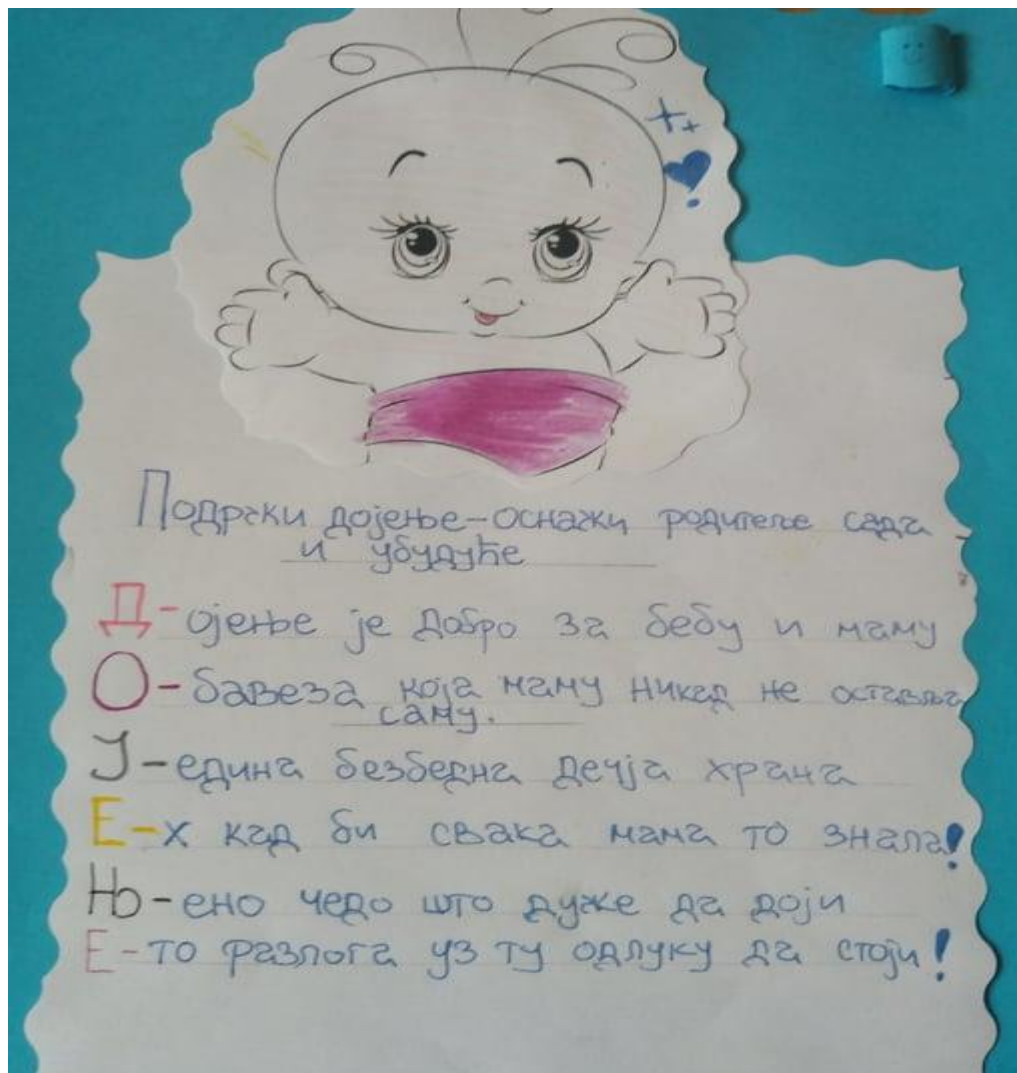 Подржи дојење-оснажи родитеље сада
и убудуће
Д-ојење је добро за бебу и маму
О-бавеза која маму никад не оставља
саму.
Ј-едина безбедна дечја храна
Е-х кад би свака мама то знала!
Њ-ено чедо што дуже да доји
Е-то разлога уз ту одлуку да стоји!